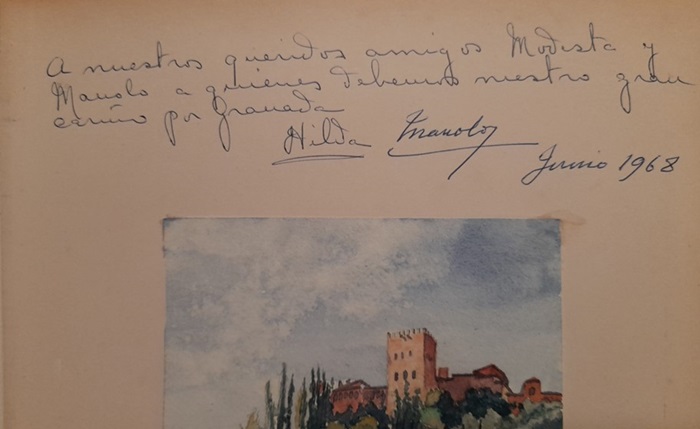 A nuestros queridos amigos Modesta y
Manolo a quienes debemos nuestro gran
cariño por Granada
Hilda Manolo
Junio 1968